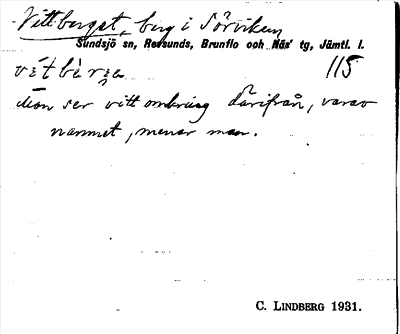 Vittberget, berg i Sörviken
Sundsjö sn, Revsunds, Brunflo och Näs' tg, Jämtl. l.
115
Man ser vitt omkring därifrån, varav
namnet, menar man.
C. LINDBERG 1931.